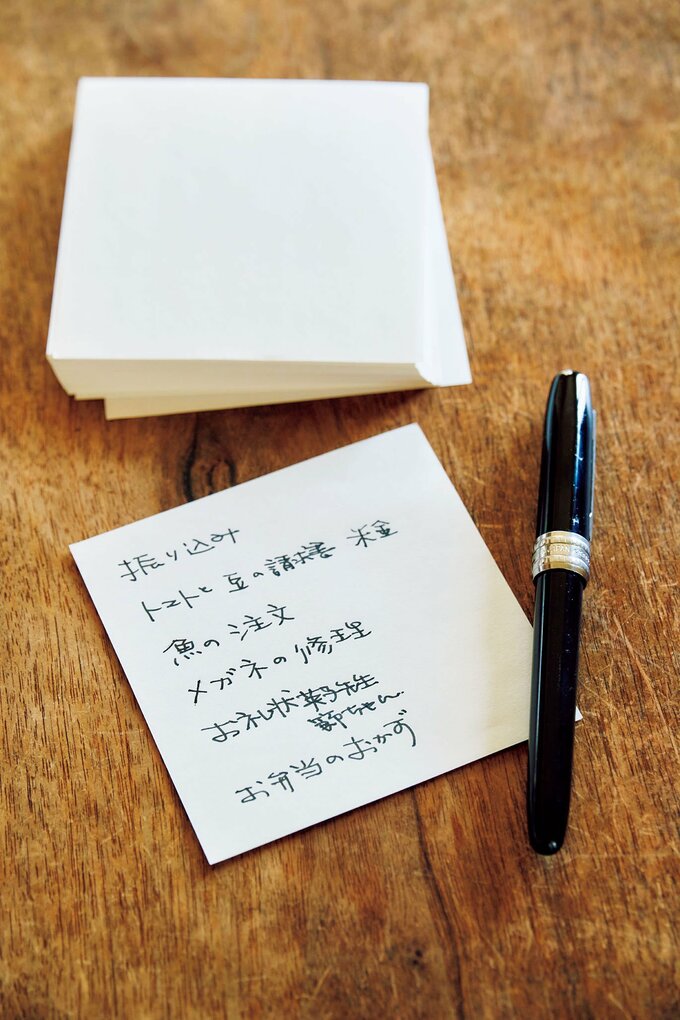 振り込み
トマトと豆の請求書
魚の注文
メガネの修理
お礼状 先生
ちゃん
お弁当のおかず
JAPAN